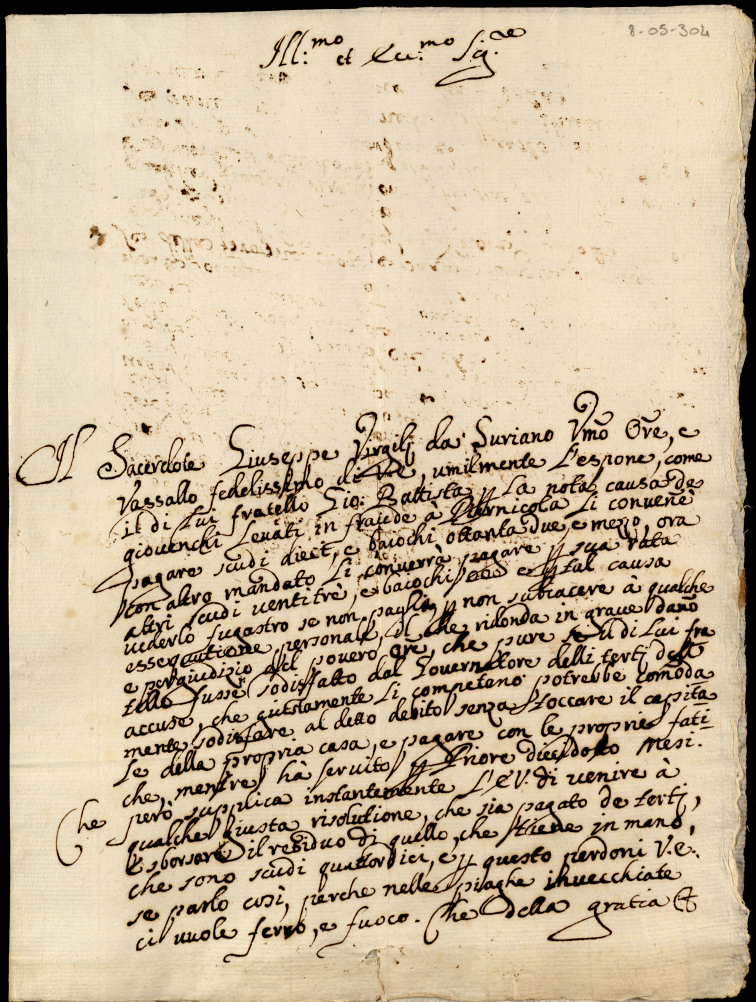 8-05-304
Ill:mo et Ecc:mo Sig:re
Il Sacerdote Giuseppe Virgilij da Suriano Umo Ore, e
Vassallo fedelissimo di V.E., umilmente l'espone, come
il di Lui fratello Gio: Battista p la nota causa de
giovenchi levati in fraude à Piernicola li convenè
pagare scudi dieci, e baiochi ottanta due e mezzo, ora
con altro mandato li converrà pagare p sua rata
altri scudi ventitrè, e baiochi e p tal causa
vederlo fugastro se non paglia, p non subiacere à qualche
essequtione personale, il che ridonda in grave dano
e pergiudizio del povero Ore, che pure se il di Lui fra
tello fusse sodisfatto dal Governatore delli terti delle
accuse, che giustamente li competano potrebbe comoda
mente sodisfare al detto debito senza stoccare il capita
le della propria casa, e pagare con le proprie fati-
che, mentre hà servito p Priore dieciddotto Mesi.
Che però supplica instantemente l'E.V. di venire à
qualche giusta risolutione, che sia pagato de terti,
e sborsare il residuo di quello, che tiene in mano,
che sono scudi quattordici, e p questo perdoni V.E.
se parlo così, perche nelle piaghe invecchiate
ci vuole ferro, e fuoco. Che della gratia &